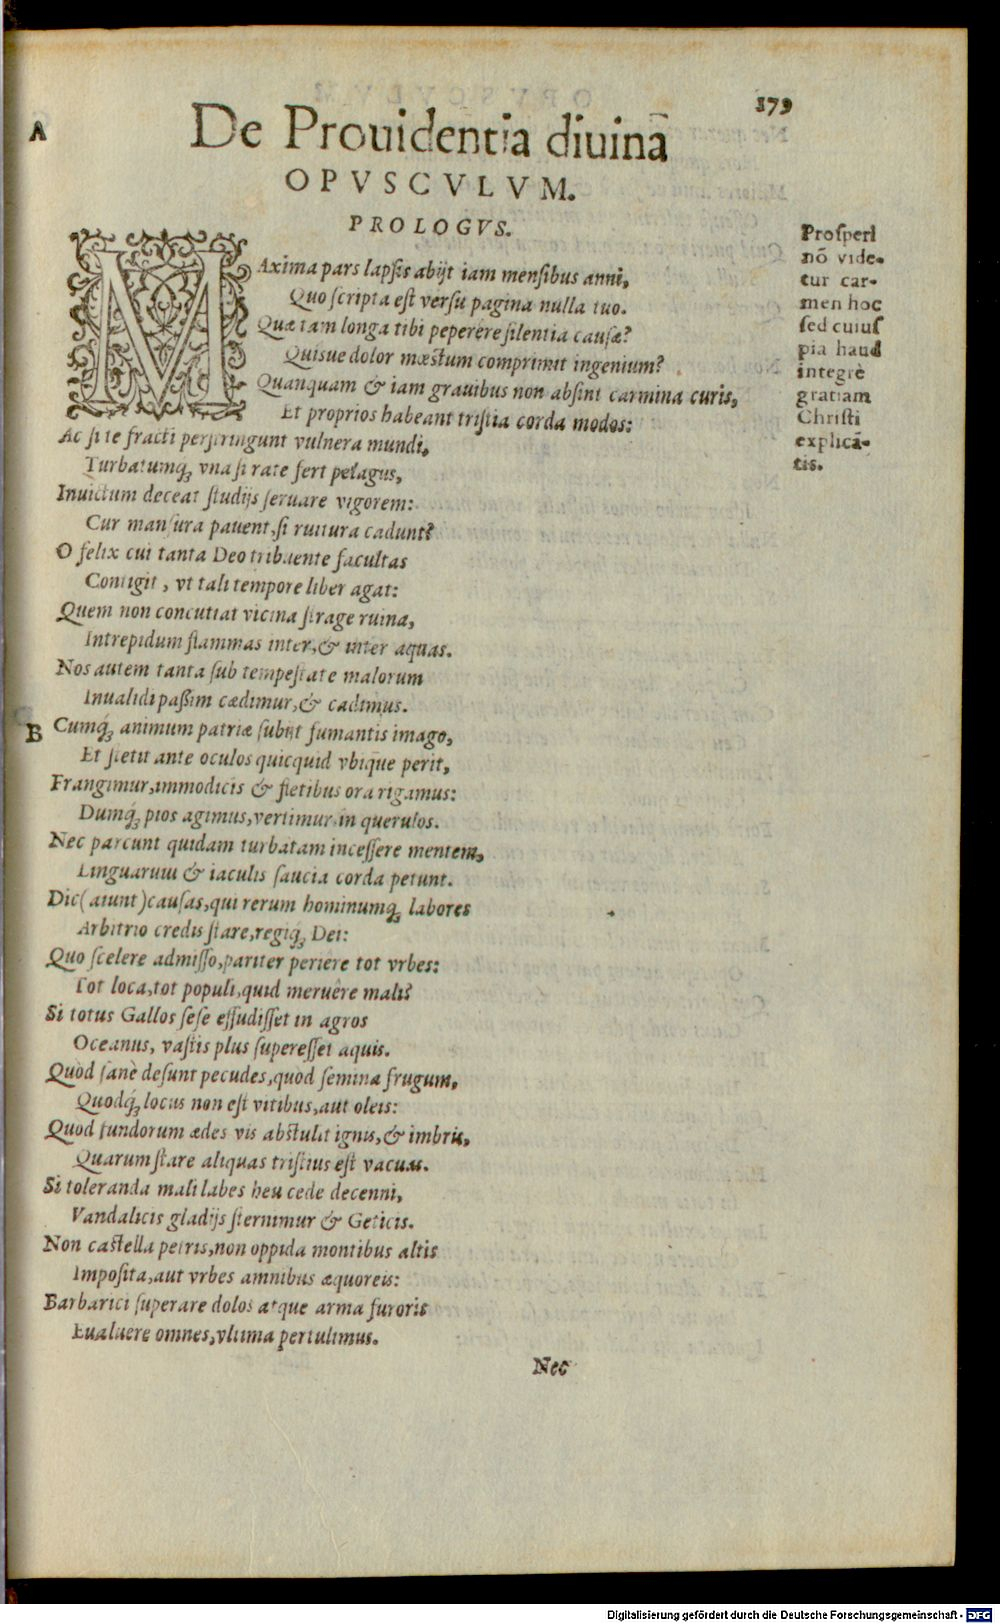 179
A
De Prouidentia diuinā
OPVSCVLVM.
PROLOGVS.
MAxima pars lapsis abijt iam mensibus anni,
Quo scripta est versu pagina nulla tuo.
Quæ tam longa tibi peperêre silentia causæ?
Quisue dolor mæstum comprimit ingenium?
Quanquam & iam grauibus non absint carmina curis,
Et proprios habeant tristia corda modos:
Ac si te fracti perstringunt vulnera mundi,
Turbatumq́; vna si rate fert pelagus,
Inuictum deceat studijs seruare vigorem:
Cur mansura pauent, si ruitura cadunt?
O felix cui tanta Deo tribuente facultas
Contigit, vt tali tempore liber agat:
Quem non concutiat vicina strage ruina,
Intrepidum flammas inter, & inter aquas.
Nos autem tanta sub tempestate malorum
Inualidi paßim cædimur, & cadimus.
B
Cumq́; animum patriæ subijt fumantis imago,
Et stetit ante oculos quicquid vbique perit,
Frangimur, immodicis & fletibus ora rigamus:
Dumq́; pios agimus, vertimur in querulos.
Nec parcunt quidam turbatam incessere mentem,
Linguarum & iaculis saucia corda petunt.
Dic (aiunt) causas, qui rerum hominumq́; labores
Arbitrio credis stare, regiq́; Dei:
Quo scelere admisso, pariter periere tot vrbes:
Tot loca, tot populi, quid meruêre mali?
Si totus Gallos sese effudisset in agros
Oceanus, vastis plus superesset aquis.
Quòd sanè desunt pecudes, quòd semina frugum,
Quodq́; locus non est vitibus, aut oleis:
Quod fundorum ædes vis abstulit ignis, & imbris,
Quarum stare aliquas tristius est vacuas.
Si toleranda mali labes heu cede decenni,
Vandalicis gladijs sternimur & Geticis.
Non castella petris, non oppida montibus altis
Imposita, aut vrbes amnibus æquoreis:
Barbarici superare dolos atque arma furoris
Eualuere omnes, vltima pertulimus.
Nec
Prosperi
nō vide-
tur car-
men hoc
sed cuius
pia haud
integrè
gratiam
Christi
explicā-
tis.
Digitalisierung gefördert durch die Deutsche Forschungsgemeinschaft - DFG